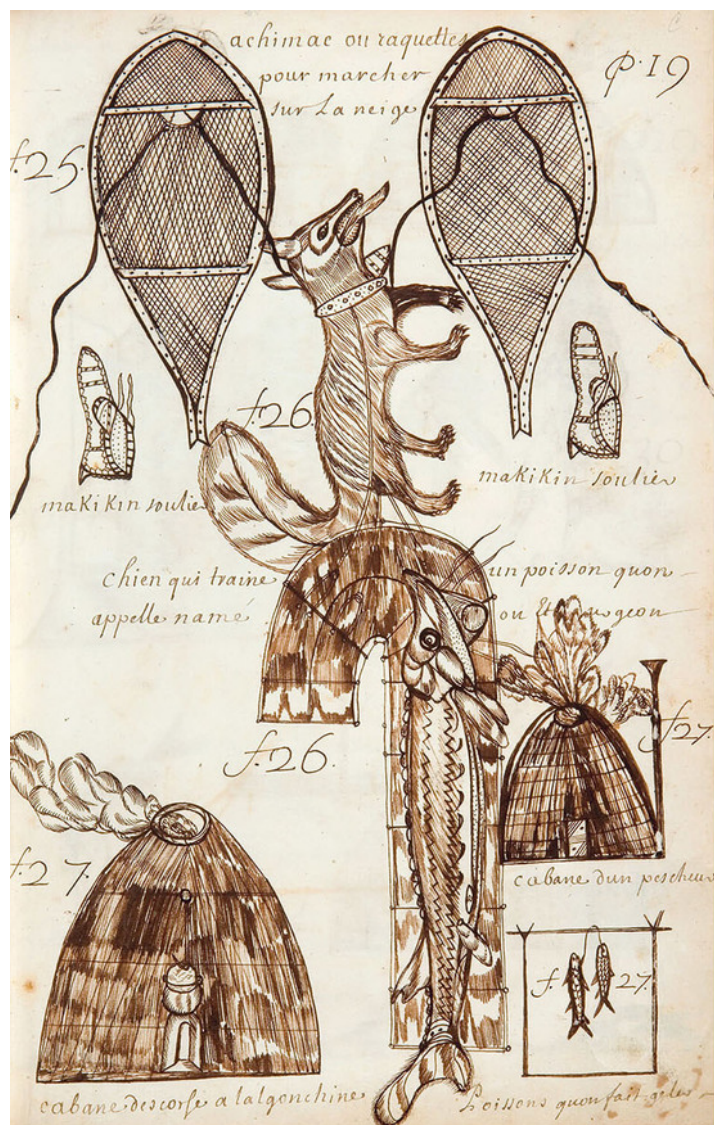 achimac ou raquettes
pour marcher
sur La neige
P.19
f.25.
f.26.
makikin soulier
makikin soulier
chien qui traine
un poisson quon
appelle namé
ou Eturgeon
f.26.
f.27.
f.27.
cabane dun pescheur
f.27.
cabane descorse a lalgonchine
Poissons quon fait geler